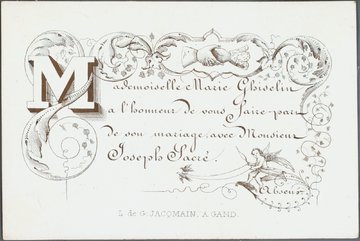 Mademoiselle Marie Ghiselin
a l'honneur de vous faire part
de son mariage, avec Monsieur
Joseph Sacré.
Absent
L. de G. JACQMAIN, A GAND.